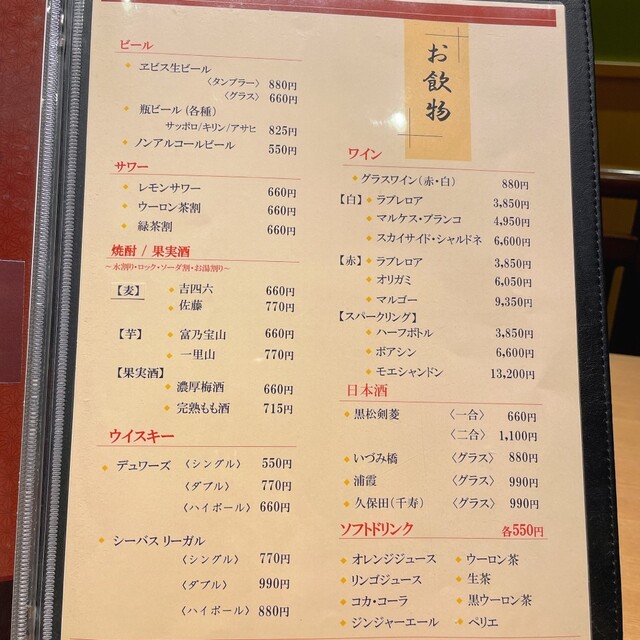 お飲物
ビール
ヱビス生ビール
〈タンブラー〉 880円
〈グラス〉 660円
瓶ビール(各種)
サッポロ/キリン/アサヒ 825円
ノンアルコールビール 550円
サワー
レモンサワー 660円
ウーロン茶割 660円
緑茶割 660円
焼酎 / 果実酒
～水割り・ロック・ソーダ割・お湯割り～
【麦】 吉四六 660円
佐藤 770円
【芋】 富乃宝山 660円
一里山 770円
【果実酒】
濃厚梅酒 660円
完熟もも酒 715円
ウイスキー
デュワーズ 〈シングル〉 550円
〈ダブル〉 770円
〈ハイボール〉 660円
シーバス リーガル
〈シングル〉 770円
〈ダブル〉 990円
〈ハイボール〉 880円
ワイン
グラスワイン(赤・白) 880円
【白】 ラブレロア 3,850円
マルケス・ブランコ 4,950円
スカイサイド・シャルドネ 6,600円
【赤】 ラブレロア 3,850円
オリガミ 6,050円
マルゴー 9,350円
【スパークリング】
ハーフボトル 3,850円
ボアシン 6,600円
モエシャンドン 13,200円
日本酒
黒松剣菱 〈一合〉 660円
〈二合〉 1,100円
いづみ橋 〈グラス〉 880円
浦霞 〈グラス〉 990円
久保田(千寿) 〈グラス〉 990円
ソフトドリンク 各550円
オレンジジュース ウーロン茶
リンゴジュース 生茶
コカ・コーラ 黒ウーロン茶
ジンジャーエール ペリエ